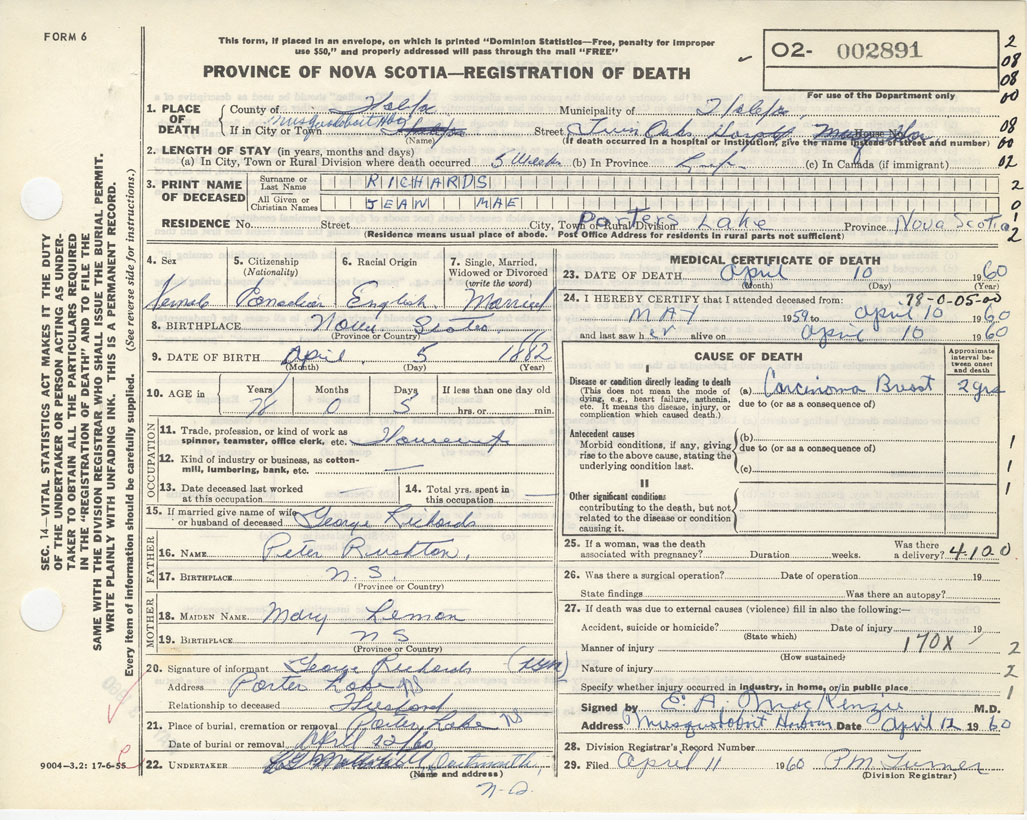 FORM 6
This form, if placed in an envelope, on which is printed "Dominion Statistics—Free, penalty for improper
use $50," and properly addressed will pass through the mail "FREE"
PROVINCE OF NOVA SCOTIA—REGISTRATION OF DEATH
O2- 002891
For use of the Department only
2
08
08
00
08
00
02
2
0
1
2
SEC. 14—VITAL STATISTICS ACT MAKES IT THE DUTY
OF THE UNDERTAKER OR PERSON ACTING AS UNDER-
TAKER TO OBTAIN ALL THE PARTICULARS REQUIRED
IN THE "REGISTRATION OF DEATH" AND TO FILE THE
SAME WITH THE DIVISION REGISTRAR WHO SHALL ISSUE THE BURIAL PERMIT.
WRITE PLAINLY WITH UNFADING INK. THIS IS A PERMANENT RECORD.
Every item of information should be carefully supplied. (See reverse side for instructions.)
1. PLACE OF DEATH
County of Halifax Municipality of Halifax
If in City or Town Musquodoboit Hbr Halifax Street Twin Oaks Hospt House No.
(Name) (If death occurred in a hospital or institution, give the name instead of street and number)
2. LENGTH OF STAY (in years, months and days)
(a) In City, Town or Rural Division where death occurred 5 Weeks (b) In Province Life (c) In Canada (if immigrant)
3. PRINT NAME OF DECEASED
Surname or Last Name RICHARDS
All Given or Christian Names JEAN MAE
RESIDENCE No. Street City, Town or Rural Division Porters Lake Province Nova Scotia
(Residence means usual place of abode. Post Office Address for residents in rural parts not sufficient)
4. Sex 5. Citizenship (Nationality) 6. Racial Origin 7. Single, Married, Widowed or Divorced (write the word)
Female Canadian English Married
8. BIRTHPLACE Nova Scotia
(Province or Country)
9. DATE OF BIRTH April 5 1882
(Month) (Day) (Year)
10. AGE in Years Months Days If less than one day old
78 0 5 hrs. or min.
OCCUPATION
11. Trade, profession, or kind of work as
spinner, teamster, office clerk, etc. Housewife
12. Kind of industry or business, as cotton-
mill, lumbering, bank, etc. —
13. Date deceased last worked at this occupation — 14. Total yrs. spent in this occupation —
15. If married give name of wife or husband of deceased George Richards
FATHER
16. NAME Peter Rushton
17. BIRTHPLACE N. S.
(Province or Country)
MOTHER
18. MAIDEN NAME Mary Lemon
19. BIRTHPLACE N S
(Province or Country)
20. Signature of informant George Richards
Address Porter Lake NS
Relationship to deceased Husband
21. Place of burial, cremation or removal Porter Lake NS
Date of burial or removal April 12/60
22. UNDERTAKER Dartmouth,
(Name and address)
N.S.
9004-3.2: 17-6-55
MEDICAL CERTIFICATE OF DEATH
23. DATE OF DEATH April 10 1960
(Month) (Day) (Year)
78-0-05-00
24. I HEREBY CERTIFY that I attended deceased from:
MAY 1959 to April 10 1960
and last saw her alive on April 10 1960
CAUSE OF DEATH
Approximate interval between onset and death
I
Disease or condition directly leading to death
(This does not mean the mode of
dying, e.g., heart failure, asthenia,
etc. It means the disease, injury, or
complication which caused death.)
(a) Carcinoma Breast 2 yrs
due to (or as a consequence of)
Antecedent causes
Morbid conditions, if any, giving
rise to the above cause, stating the
underlying condition last.
(b)
due to (or as a consequence of)
(c)
II
Other significant conditions
contributing to the death, but not
related to the disease or condition
causing it.
1
1
1
25. If a woman, was the death
associated with pregnancy? Duration weeks. Was there a delivery? 4120
26. Was there a surgical operation? Date of operation 19
State findings Was there an autopsy?
27. If death was due to external causes (violence) fill in also the following:—
Accident, suicide or homicide? Date of injury 19
(State which)
Manner of injury 170X 2
(How sustained)
Nature of injury 2
Specify whether injury occurred in industry, in home, or/in public place 1
Signed by E. A. MacKenzie M.D.
Address Musquodoboit Harbour Date April 12 1960
28. Division Registrar's Record Number
29. Filed April 11 1960 P M Turner
(Division Registrar)